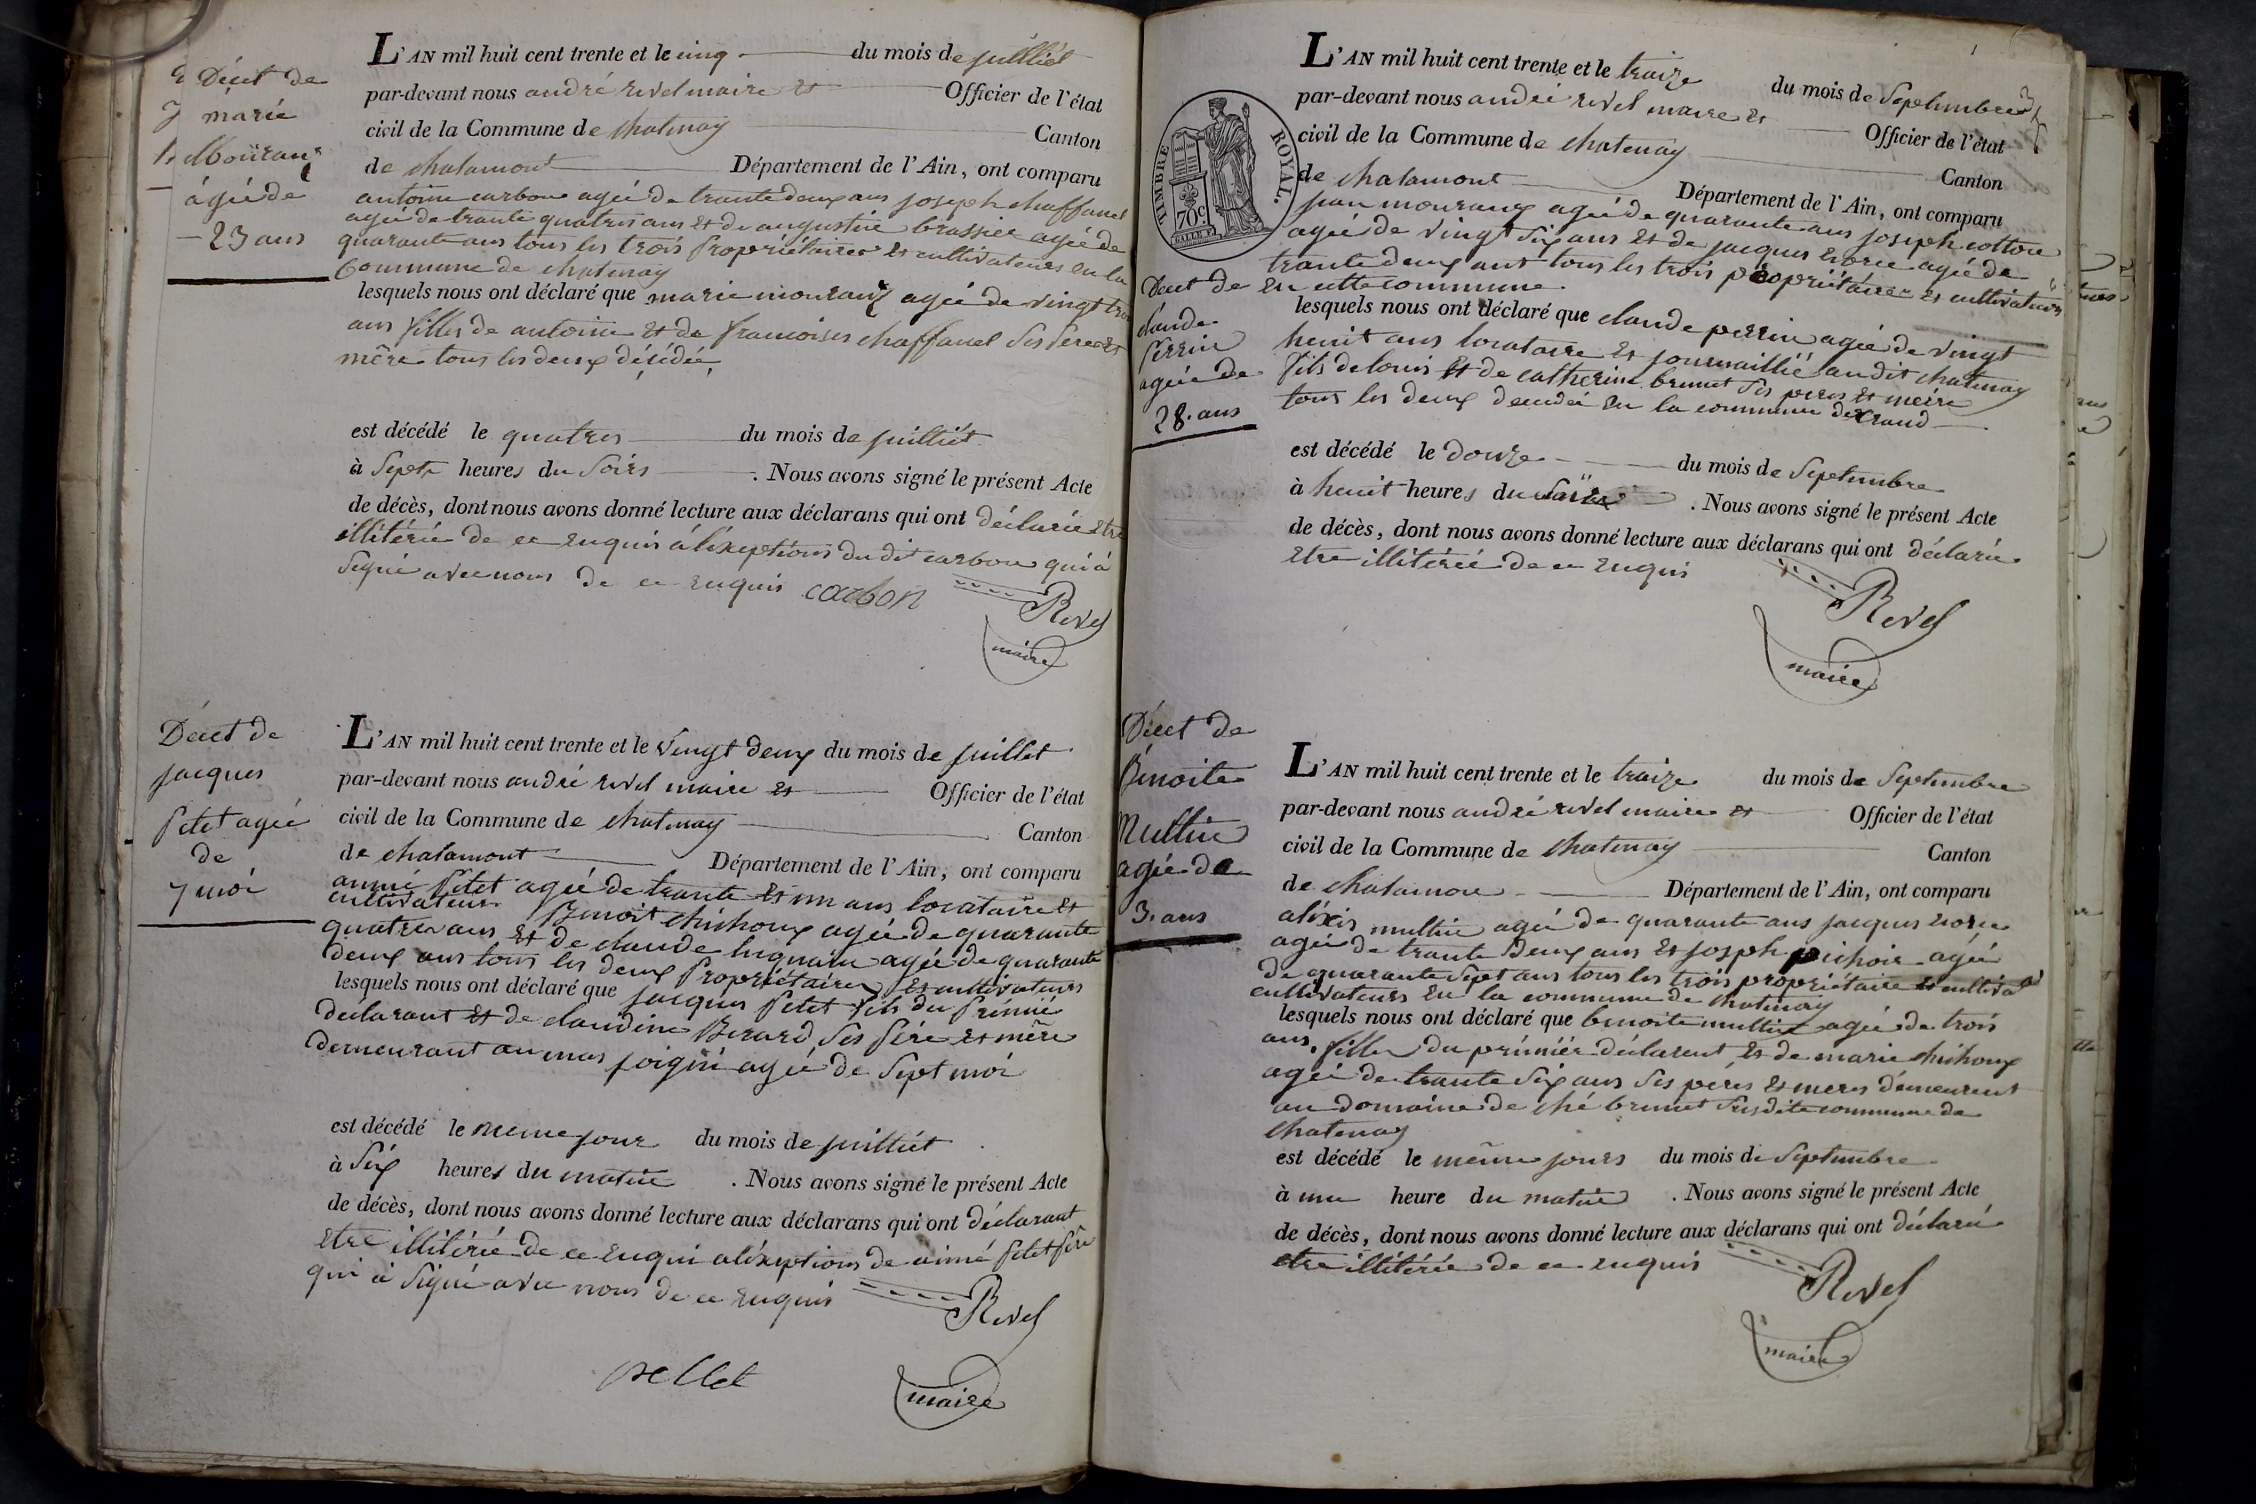 Décet de
marie
Mouraux
âgée de
23 ans
L'AN mil huit cent trente et le cinq du mois de juilliét
par-devant nous andré revel maire et Officier de l'état
civil de la Commune de chatenay Canton
de chalamont Département de l'Ain, ont comparu
antoine carbon agée de trante deux ans joseph chaffanel
agée de trante quatres ans et de augustin brassier agée de
quarante ans tous les trois propriétaires et cultivateurs en la
Commune de chatenay
lesquels nous ont déclaré que marie mouraux agée de vingt trois
ans filles de antoine et de francoises chaffanel ses peres et
mère tous les deux décédée
est décédé le quatres du mois de juilliét
à Septs heures du Soirs . Nous avons signé le présent Acte
de décès, dont nous avons donné lecture aux déclarans qui ont déclarée etre
illitérée de ce enquis à léxeptions du dit carbon qui à
Signé avec nous de ce enquis carbon
Revel
maire
Décet de
jacques
Petet agée
de
7 moi
L'AN mil huit cent trente et le vingt deux du mois de juillet
par-devant nous andré revel maire et Officier de l'état
civil de la Commune de chatenay Canton
de chalamont Département de l'Ain, ont comparu
aimé Petet agée de trante et un ans locataire et
cultivateurs Benoit chichoux agée de quarante
quatres ans et de claude huguain agée de quarante
deux ans tous les deux Propriétaires et cultivateurs
lesquels nous ont déclaré que jacques Petet fils du Prémié
déclarant et de claudine Berard Ses Pére et mére
demeurant au mas joigni agée de Sept moi
est décédé le meme jour du mois de juilliét
à Six heures du matin . Nous avons signé le présent Acte
de décès, dont nous avons donné lecture aux déclarans qui ont déclarant
etre illitérée de ce enqui aléxeptions de aimé Petet pére
qui à Signé avec nous de ce enquis
Revel
pellet
maire
TIMBRE ROYAL.
70c
L'AN mil huit cent trente et le traize du mois de Septembre
par-devant nous andré revel maire et Officier de l'état
civil de la Commune de chatenay Canton
de chalamont Département de l'Ain, ont comparu
jean mouraux agée de quarante ans joseph cotton
agée de vingt six ans et de jacques agée de
trante deux ans tous les trois propriétaires et cultivateurs
en cette commune.
Décet de
claude
Perrin
agée de
28. ans
lesquels nous ont déclaré que claude perrin agée de vingt
heuit ans locataire et journaillié au dit chatenay
fils de louis et de catherine brunet Ses peres et meére
tous les deux decedée en la commune de Crand
est décédé le douze du mois de Septembre
à heuit heures du . Nous avons signé le présent Acte
de décès, dont nous avons donné lecture aux déclarans qui ont déclarée
etre illitérée de ce enquis
Revel
maire
Décet de
Benoite
Multin
agée de
3. ans
L'AN mil huit cent trente et le traize du mois de Septembre
par-devant nous andré revel maire et Officier de l'état
civil de la Commune de chatenay Canton
de chalamon Département de l'Ain, ont comparu
aléxis multin agée de quarante ans jacques
agée de trante deux ans et joseph pichoir agée
de quarante Sept ans tous les trois propriétaire et cultiva
cultivateurs en la commune de chatenay
lesquels nous ont déclaré que benoite multin agée de trois
ans, filles du prémiér déclarent et de marie chichoux
agée de trante six ans Ses péres et meres demeurent
au domaine de ché brunet Susdite commune de
chatenay
est décédé le même jours du mois de Septembre
à une heure du matin . Nous avons signé le présent Acte
de décès, dont nous avons donné lecture aux déclarans qui ont déclarée
etre illitérée de ce enquis
Revel
maire